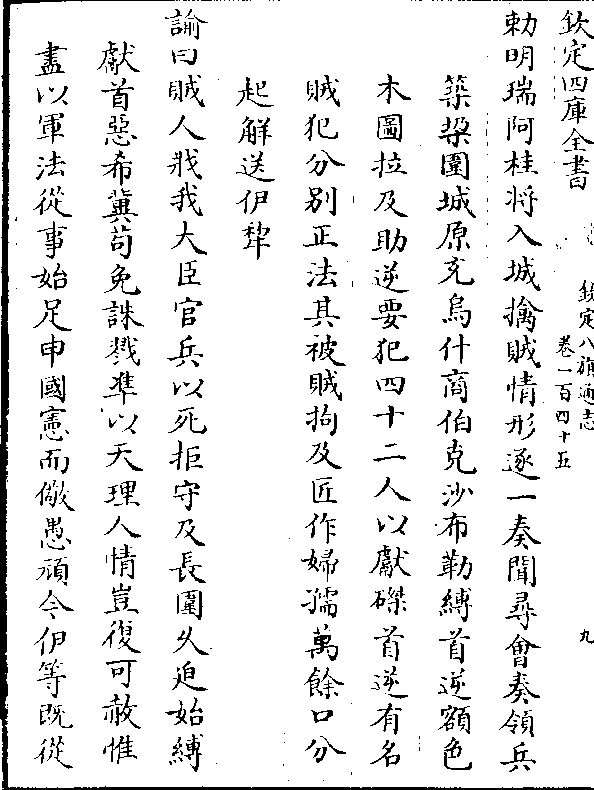 欽定四庫全書
欽定八旗通志
卷一百四十五
九
勅明瑞阿桂將入城擒賊情形逐一奏聞尋會奏領兵
築栅圍城原充烏什商伯克沙布勒縛首逆額色
木圖拉及助逆要犯四十二人以獻磔首逆有名
賊犯分别正法其被賊拘及匠作婦孺萬餘口分
起解送伊犂
諭曰賊人戕我大臣官兵以死拒守及長圍久迫始縛
獻首惡希冀苟免誅戮準以天理人情豈復可赦惟
盡以軍法從事始足申國憲而儆愚頑今伊等既從